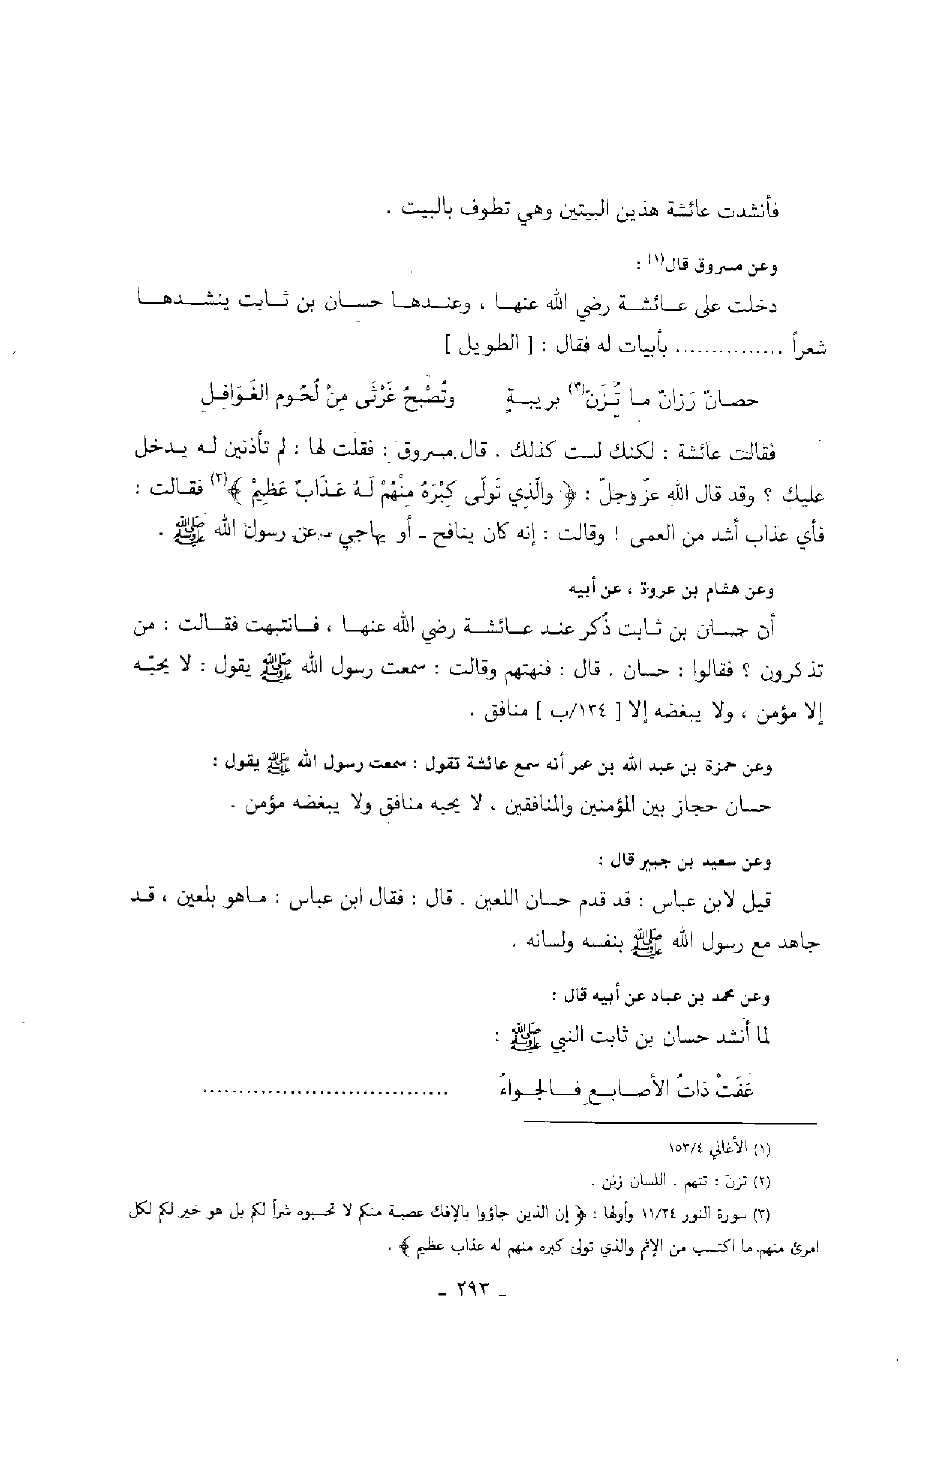 فأنشدت عائشة هذين البيتين وهي تطوف بالبيت .
وعن مسروق قال(١) :
دخلت على عائشة رضي الله عنها ، وعندها حسان بن ثابت ينشدها
شعراً .............. بأبيات له فقال : [ الطويل ]
حصانٌ رَزانٌ ما تُزَنّ(٢) بريبةٍ وتُصْبحُ غَرْثَى مِنْ لُحُوم الغَوَافِلِ
فقالت عائشة : لكنك لست كذلك . قال مسروق : فقلت لها : لم تأذنين له يدخل
عليك ؟ وقد قال الله عزّ وجلّ : ﴿ والَّذي تَولَّى كِبْرَهُ مِنْهُمْ لَهُ عَذَابٌ عَظِيمٌ ﴾(٣) فقالت :
فأي عذاب أشد من العمى ! وقالت : إنه كان ينافح - أو يهاجي - عن رسول الله ﷺ .
وعن هشام بن عروة ، عن أبيه
أن حسان بن ثابت ذُكر عند عائشة رضي الله عنها ، فانتبهت فقالت : من
تذكرون ؟ فقالوا : حسان . قال : فنهتهم وقالت : سمعت رسول الله ﷺ يقول : لا يحبّه
إلا مؤمن ، ولا يبغضه إلا [ ١٣٤/ب ] منافق .
وعن حمزة بن عبد الله بن عمر أنه سمع عائشة تقول : سمعت رسول الله ﷺ يقول :
حسان حجاز بين المؤمنين والمنافقين ، لا يحبه منافق ولا يبغضه مؤمن .
وعن سعيد بن جبير قال :
قيل لابن عباس : قد قدم حسان اللعين . قال : فقال ابن عباس : ماهو بلعين ، قد
جاهد مع رسول الله ﷺ بنفسه ولسانه .
وعن محمد بن عباد عن أبيه قال :
لما أنشد حسان بن ثابت النبي ﷺ :
عَفَتْ ذاتُ الأصابعِ فالجواءُ .................................
(١) الأغاني ١٥٣/٤
(٢) تزنّ : تتهم . اللسان زنن .
(٣) سورة النور ١١/٢٤ وأولها : ﴿ إن الذين جاؤوا بالإفك عصبة منكم لا تحسبوه شراً لكم بل هو خير لكم لكل
امرئ منهم ما اكتسب من الإثم والذي تولى كبره منهم له عذاب عظيم ﴾ .
- ٢٩٣ -